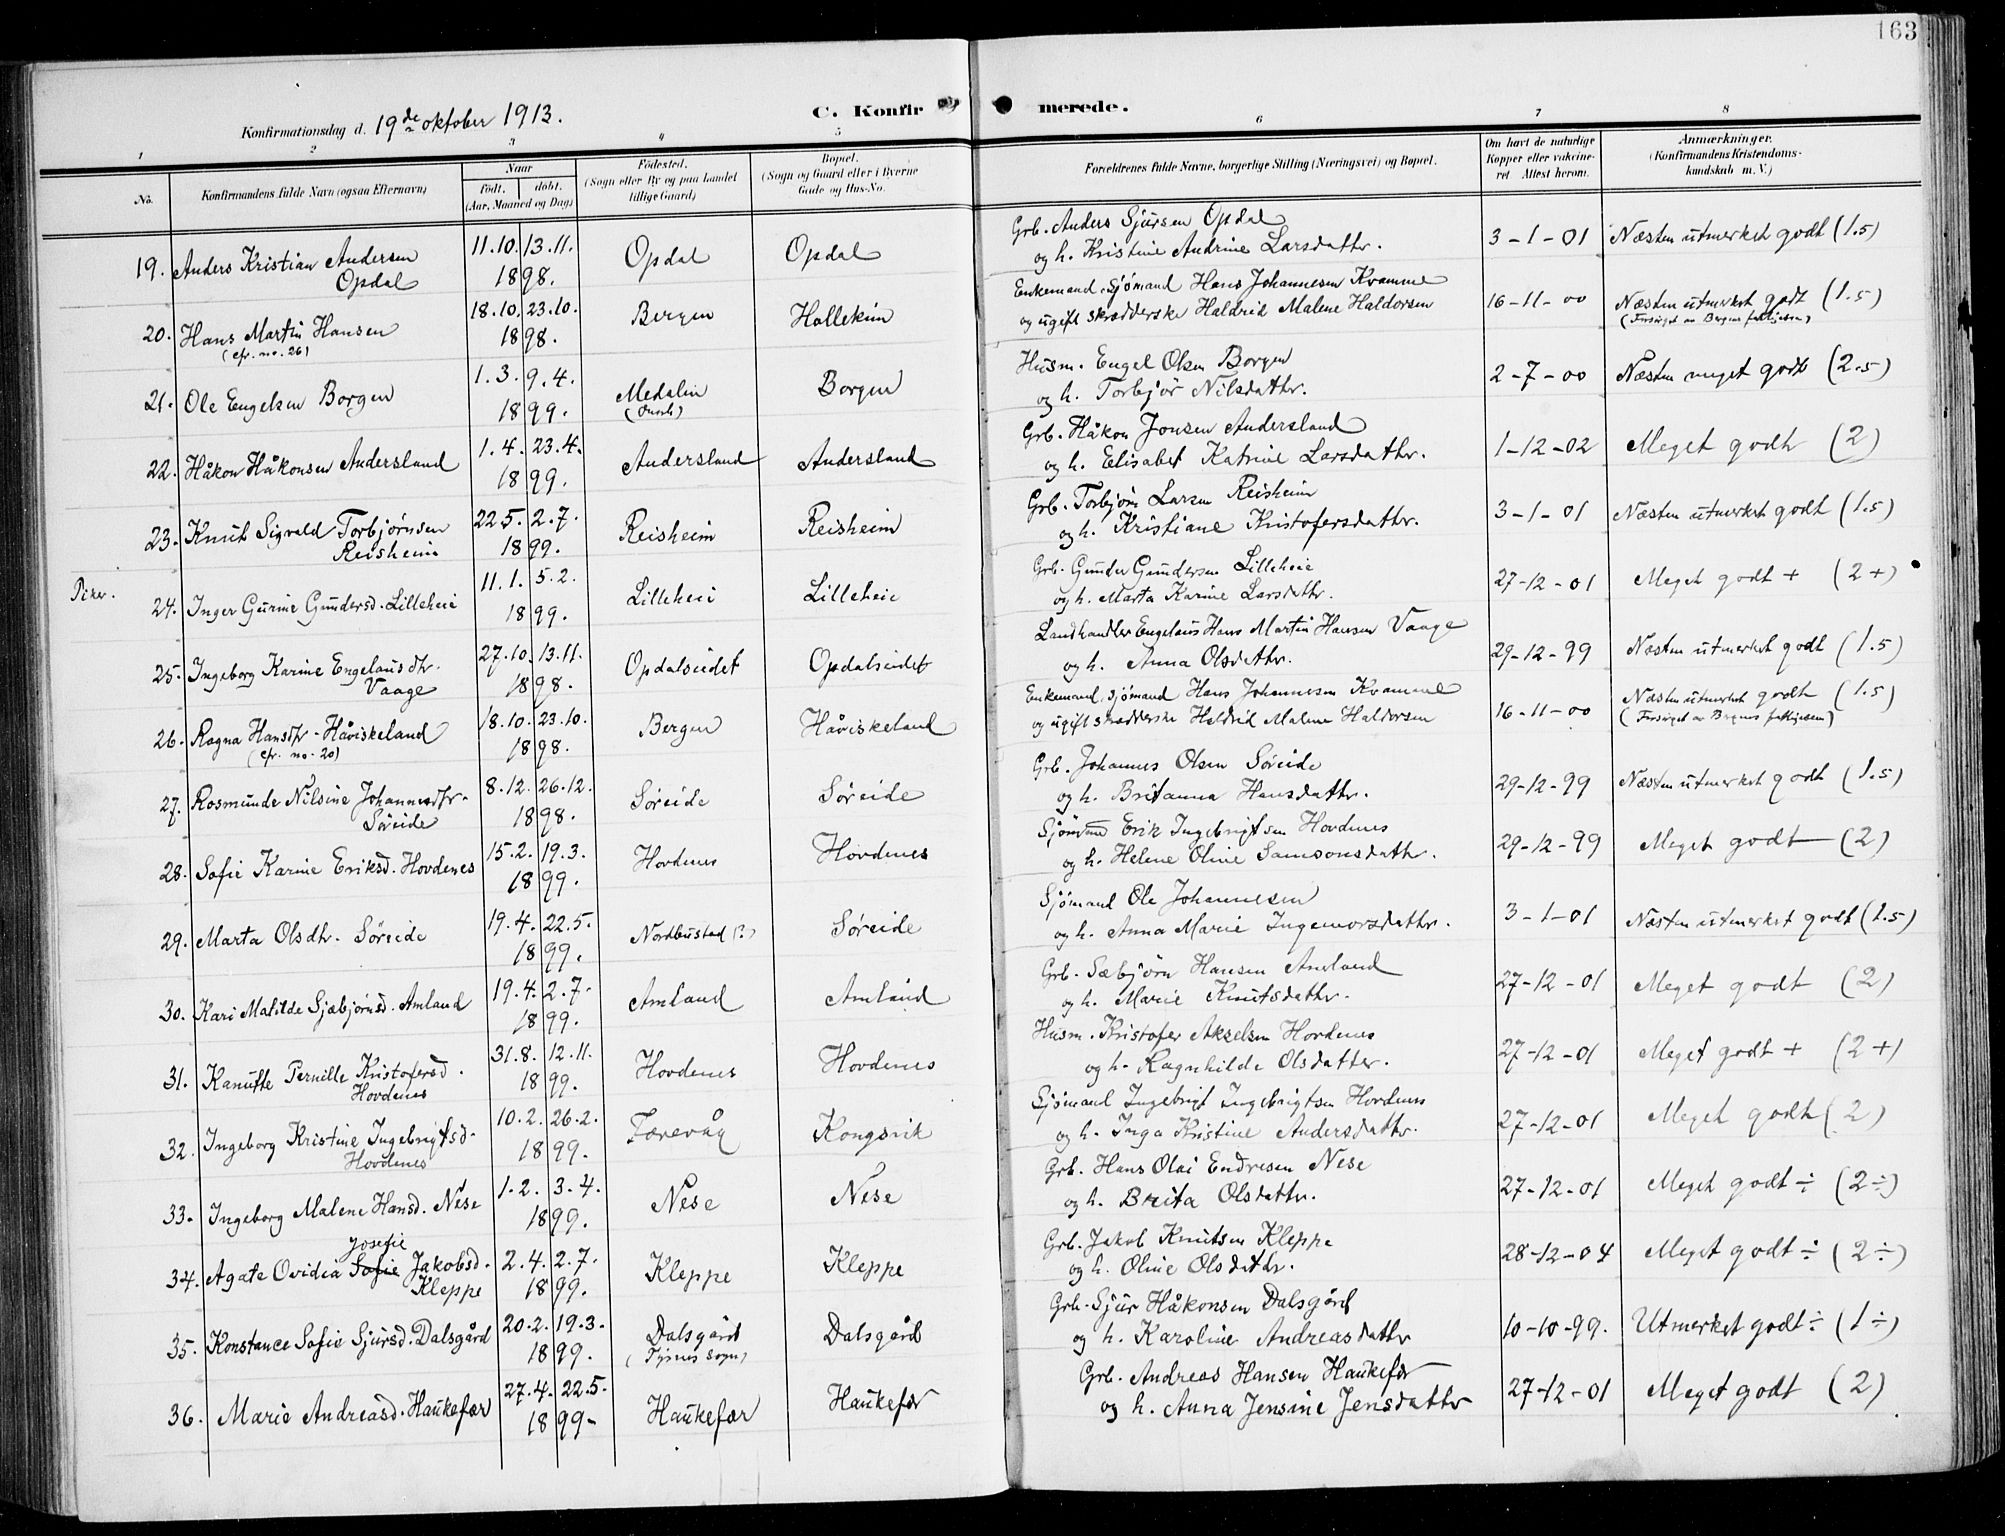 163
Konfirmationsdag d. 19de oktober 1913. C. Konfirmerede.
1 2 3 4 5 6 7 8
No. Konfirmandens fulde Navn (ogsaa Efternavn) Naar født. døbt. (Aar, Maaned og Dag) Fødested. (Sogn eller By og paa Landet tillige Gaard) Bopæl. (Sogn og Gaard eller i Byerne Gade og Hus-No. Forældrenes fulde Navne, borgerlige Stilling (Næringsvei) og Bopæl. Om havt de naturlige Kopper eller vakcineret Attest herom. Anmærkninger. (Konfirmandens Kristendomskundskab m. V.)
19. Anders Kristian Andersen Opdal 11.10. 13.11. 1898. Opdal Opdal Grb. Anders Sjursen Opdal og h. Kristine Andrine Larsdattr. 3-1-01 Næsten utmerket godt (1.5)
20. Hans Martin Hansen (cfr. no. 26) 18.10. 23.10. 1898. Bergen Enkemand, sjømand Hans Johannesen Kvamme og ugift skrædderske Haldrid Malene Haldorsen 16-11-00 Næsten utmerket godt (1.5) (Forsørget av Bergens
21. Ole Engelsen Borgen 1.3. 9.4. 1899. Borgen Husm. Engel Olsen Borgen og h. Torbjør Nilsdattr. 2-7-00 Næsten meget godt (2.5)
22. Håkon Håkonsen Andersland 1.4. 23.4. 1899. Andersland Andersland Grb. Håkon Jonsen Andersland og h. Elisabet Katrine Larsdattr. 1-12-02 Meget godt (2)
23. Knut Sigvald Torbjørnsen Reisheim 22.5. 2.7. 1899. Reisheim Reisheim Grb. Torbjørn Larsen Reisheim og h. Kristiane Kristofersdattr. 3-1-01 Næsten utmerket godt (1.5)
Piker.
24. Inger Gurine Gundersd. Lilleheie 11.1. 5.2. 1899. Lilleheie Lilleheie Grb. Gunder Gundersen Lilleheie og h. Marta Karine Larsdattr. 27-12-01 Meget godt + (2+)
25. Ingeborg Karine Engelausdtr. Vaage 27.10. 13.11. 1898. Opdalseidet Opdalseidet Landhandler Engelaus Hans Martin Hansen Vaage og h. Anna Olsdattr. 29-12-99 Næsten utmerket godt (1.5)
26. Ragna Hansdtr. Håviskeland (cfr. no. 20) 18.10. 23.10. 1898. Bergen Håviskeland Enkemand, sjømand Hans Johannesen Kvamme og ugift skrædderske Haldrid Malene Haldorsen 16-11-00 Næsten utmerket godt (1.5) (Forsørget av Bergens
27. Rosmunde Nilsine Johannesdtr. Søreide 8.12. 26.12. 1898. Søreide Søreide Grb. Johannes Olsen Søreide og h. Britanna Hansdattr. 29-12-99 Næsten utmerket godt (1.5)
28. Sofie Karine Eriksd. Hovdenes 15.2. 19.3. 1899. Hovdenes Hovdenes Sjømand Erik Ingebrigtsen Hovdenes og h. Helene Oline Samsonsdattr. 29-12-99 Meget godt (2)
29. Marta Olsdtr. Søreide 19.4. 22.5. 1899. Nordhustad (?) Søreide Sjømand Ole Johannesen og h. Anna Marie Ingemorsdattr. 3-1-01 Næsten utmerket godt (1.5)
30. Kari Matilde Sjæbjørnsd. Amland 19.4. 2.7. 1899. Amland Amland Grb. Sæbjørn Hansen Amland og h. Marie Knutsdattr. 27-12-01 Meget godt (2)
31. Kanutte Pernille Kristofersd. Hovdenes 31.8. 12.11. 1899. Hovdenes Hovdenes Husm. Kristofer Akselsen Hovdenes og h. Ragnhilde Olsdatter. 27-12-01 Meget godt + (2+)
32. Ingeborg Kristine Ingebrigtsd. Hovdenes 10.2. 26.2. 1899. Færevåg Kongsvik Sjømand Ingebrigt Ingebrigtsen Hovdenes og h. Inga Kristine Andersdattr. 27-12-01 Meget godt (2)
33. Ingeborg Malene Hansd. Nese 1.2. 3.4. 1899. Nese Nese Grb. Hans Olai Endresen Nese og h. Brita Olsdattr. 27-12-01 Meget godt ÷ (2÷)
34. Agate Ovidia Sofie Josefie Jakobsd. Kleppe 2.4. 2.7. 1899. Kleppe Kleppe Grb. Jakob Knutsen Kleppe og h. Oline Olsdattr. 28-12-04 Meget godt ÷ (2÷)
35. Konstance Sofie Sjursd. Dalsgård 20.2. 19.3. 1899. Dalsgård (Tysnes sogn) Dalsgård Grb. Sjur Håkonsen Dalsgård og h. Karoline Andreasdattr 10-10-99. Utmerket godt ÷ (1÷)
36. Marie Andreasd. Haukefær 27.4. 22.5. 1899- Haukefær Haukefær Grb. Andreas Hansen Haukefær og h. Anna Jensine Jensdattr 27-12-01 Meget godt (2)